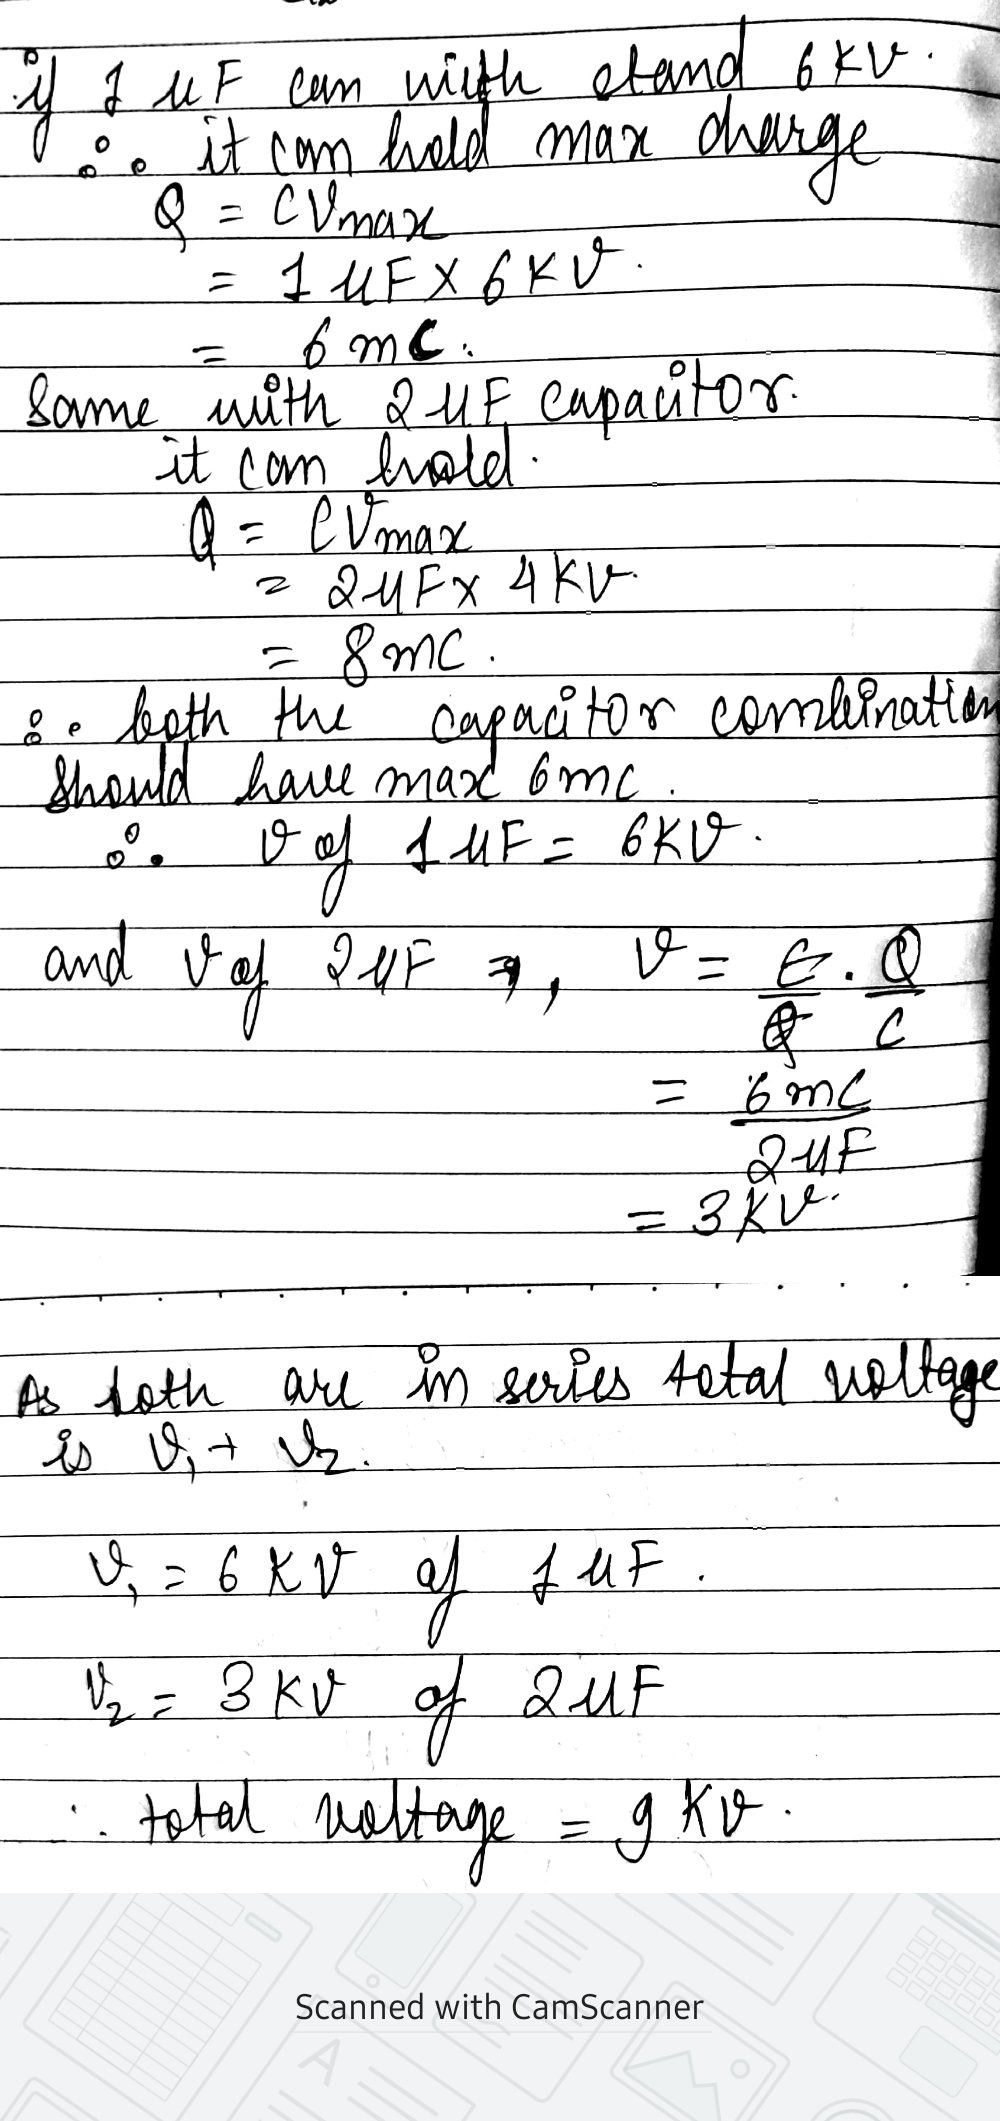 if 1 μF can with stand 6 KV.
∴ it can hold max charge
Q = CVmax
= 1 μF × 6 KV.
= 6 mC.
Same with 2 μF capacitor.
it can hold.
Q = CVmax
= 2 μF × 4 KV.
= 8 mC.
∴ both the capacitor combination
should have max 6 mC.
∴ V of 1 μF = 6 KV.
and V of 2 μF ⇒, V = Q/C
= 6 mC
2 μF
= 3 KV.
As both are in series total voltage
is V₁ + V₂.
V₁ = 6 KV of 1 μF.
V₂ = 3 KV of 2 μF
∴ total voltage = 9 KV.
Scanned with CamScanner